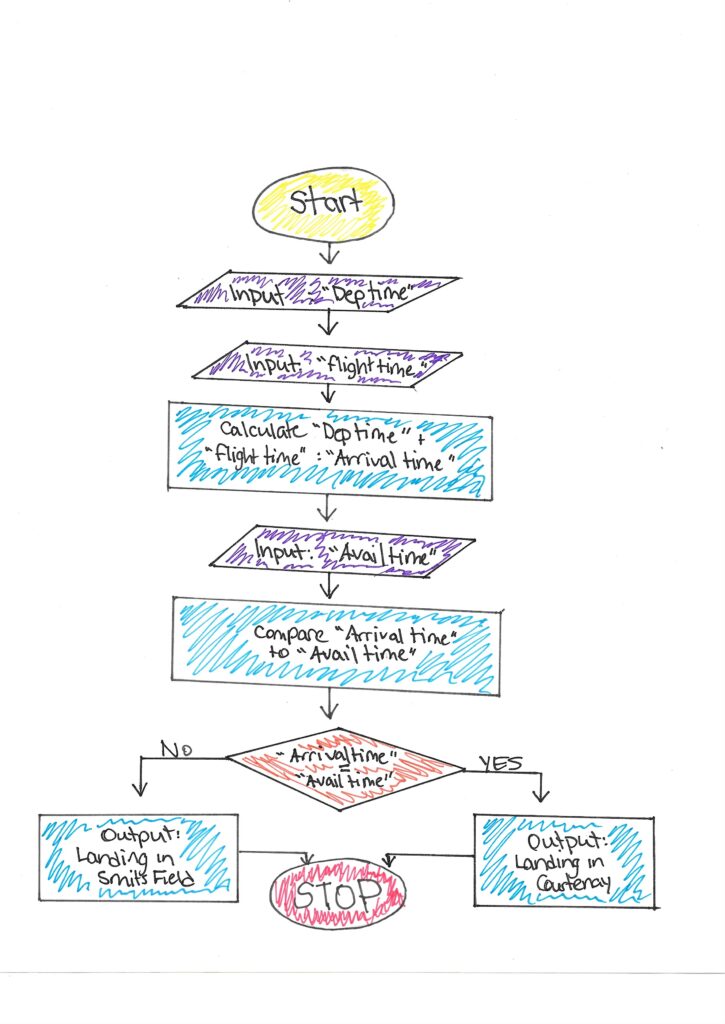 Start
Input : "Deptime"
Input: "flight time"
Calculate "Deptime" +
"flight time" : "Arrival time"
Input: "Avail time"
Compare "Arrival time"
to "Avail time"
NO
"Arrival time"
=
"Avail time"
YES
Output:
Landing in
Smits Field
Output:
Landing in
Courtenay
STOP